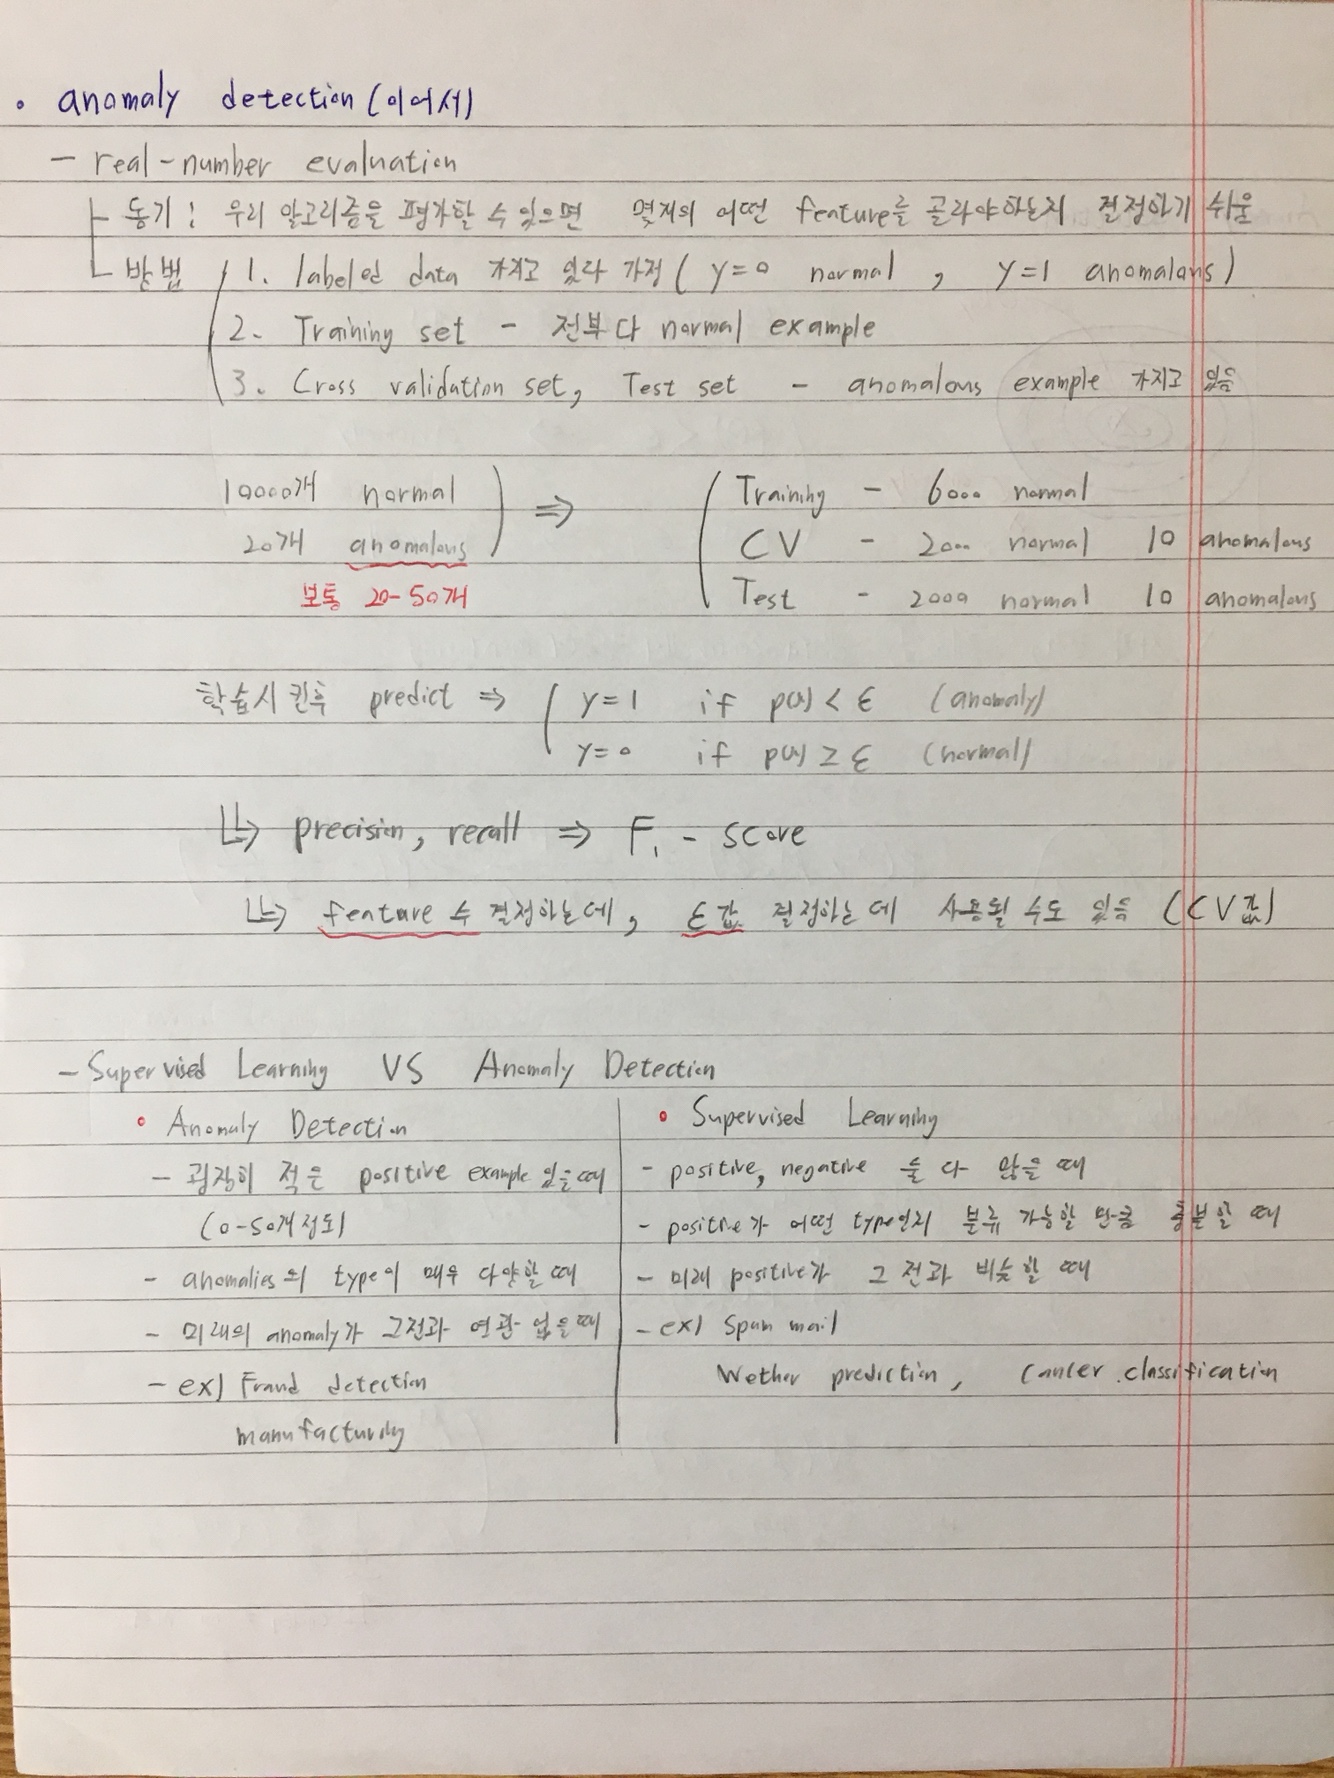 • anomaly detection (이어서)
- real-number evaluation
동기 : 우리 알고리즘을 평가할 수 있으면 몇개의 어떤 feature를 골라야하는지 결정하기 쉬움
방법 1. labeled data 가지고 있다 가정 ( y=0 normal , y=1 anomalous )
2. Training set - 전부다 normal example
3. Cross validation set, Test set - anomalous example 가지고 있음
10000개 normal ⇒ Training - 6000 normal
20개 anomalous CV - 2000 normal 10 anomalous
보통 20-50개 Test - 2000 normal 10 anomalous
학습시킨후 predict ⇒ y=1 if p(x) < ε (anomaly)
y=0 if p(x) ≥ ε (normal)
↳ precision, recall ⇒ F₁ - score
↳ feature 수 결정하는데, ε값 결정하는데 사용될 수도 있음 (CV값)
- Supervised Learning VS Anomaly Detection
• Anomaly Detection
- 굉장히 적은 positive example 있을때
(0-50개정도)
- anomalies의 type이 매우 다양할때
- 미래의 anomaly가 그전과 연관 없을때
- ex) Fraud detection
manufacturing
• Supervised Learning
- positive, negative 둘 다 많을 때
- positive가 어떤 type인지 분류 가능할 만큼 충분할 때
- 미래 positive가 그 전과 비슷할 때
- ex) Spam mail
Wether prediction, Cancer classification